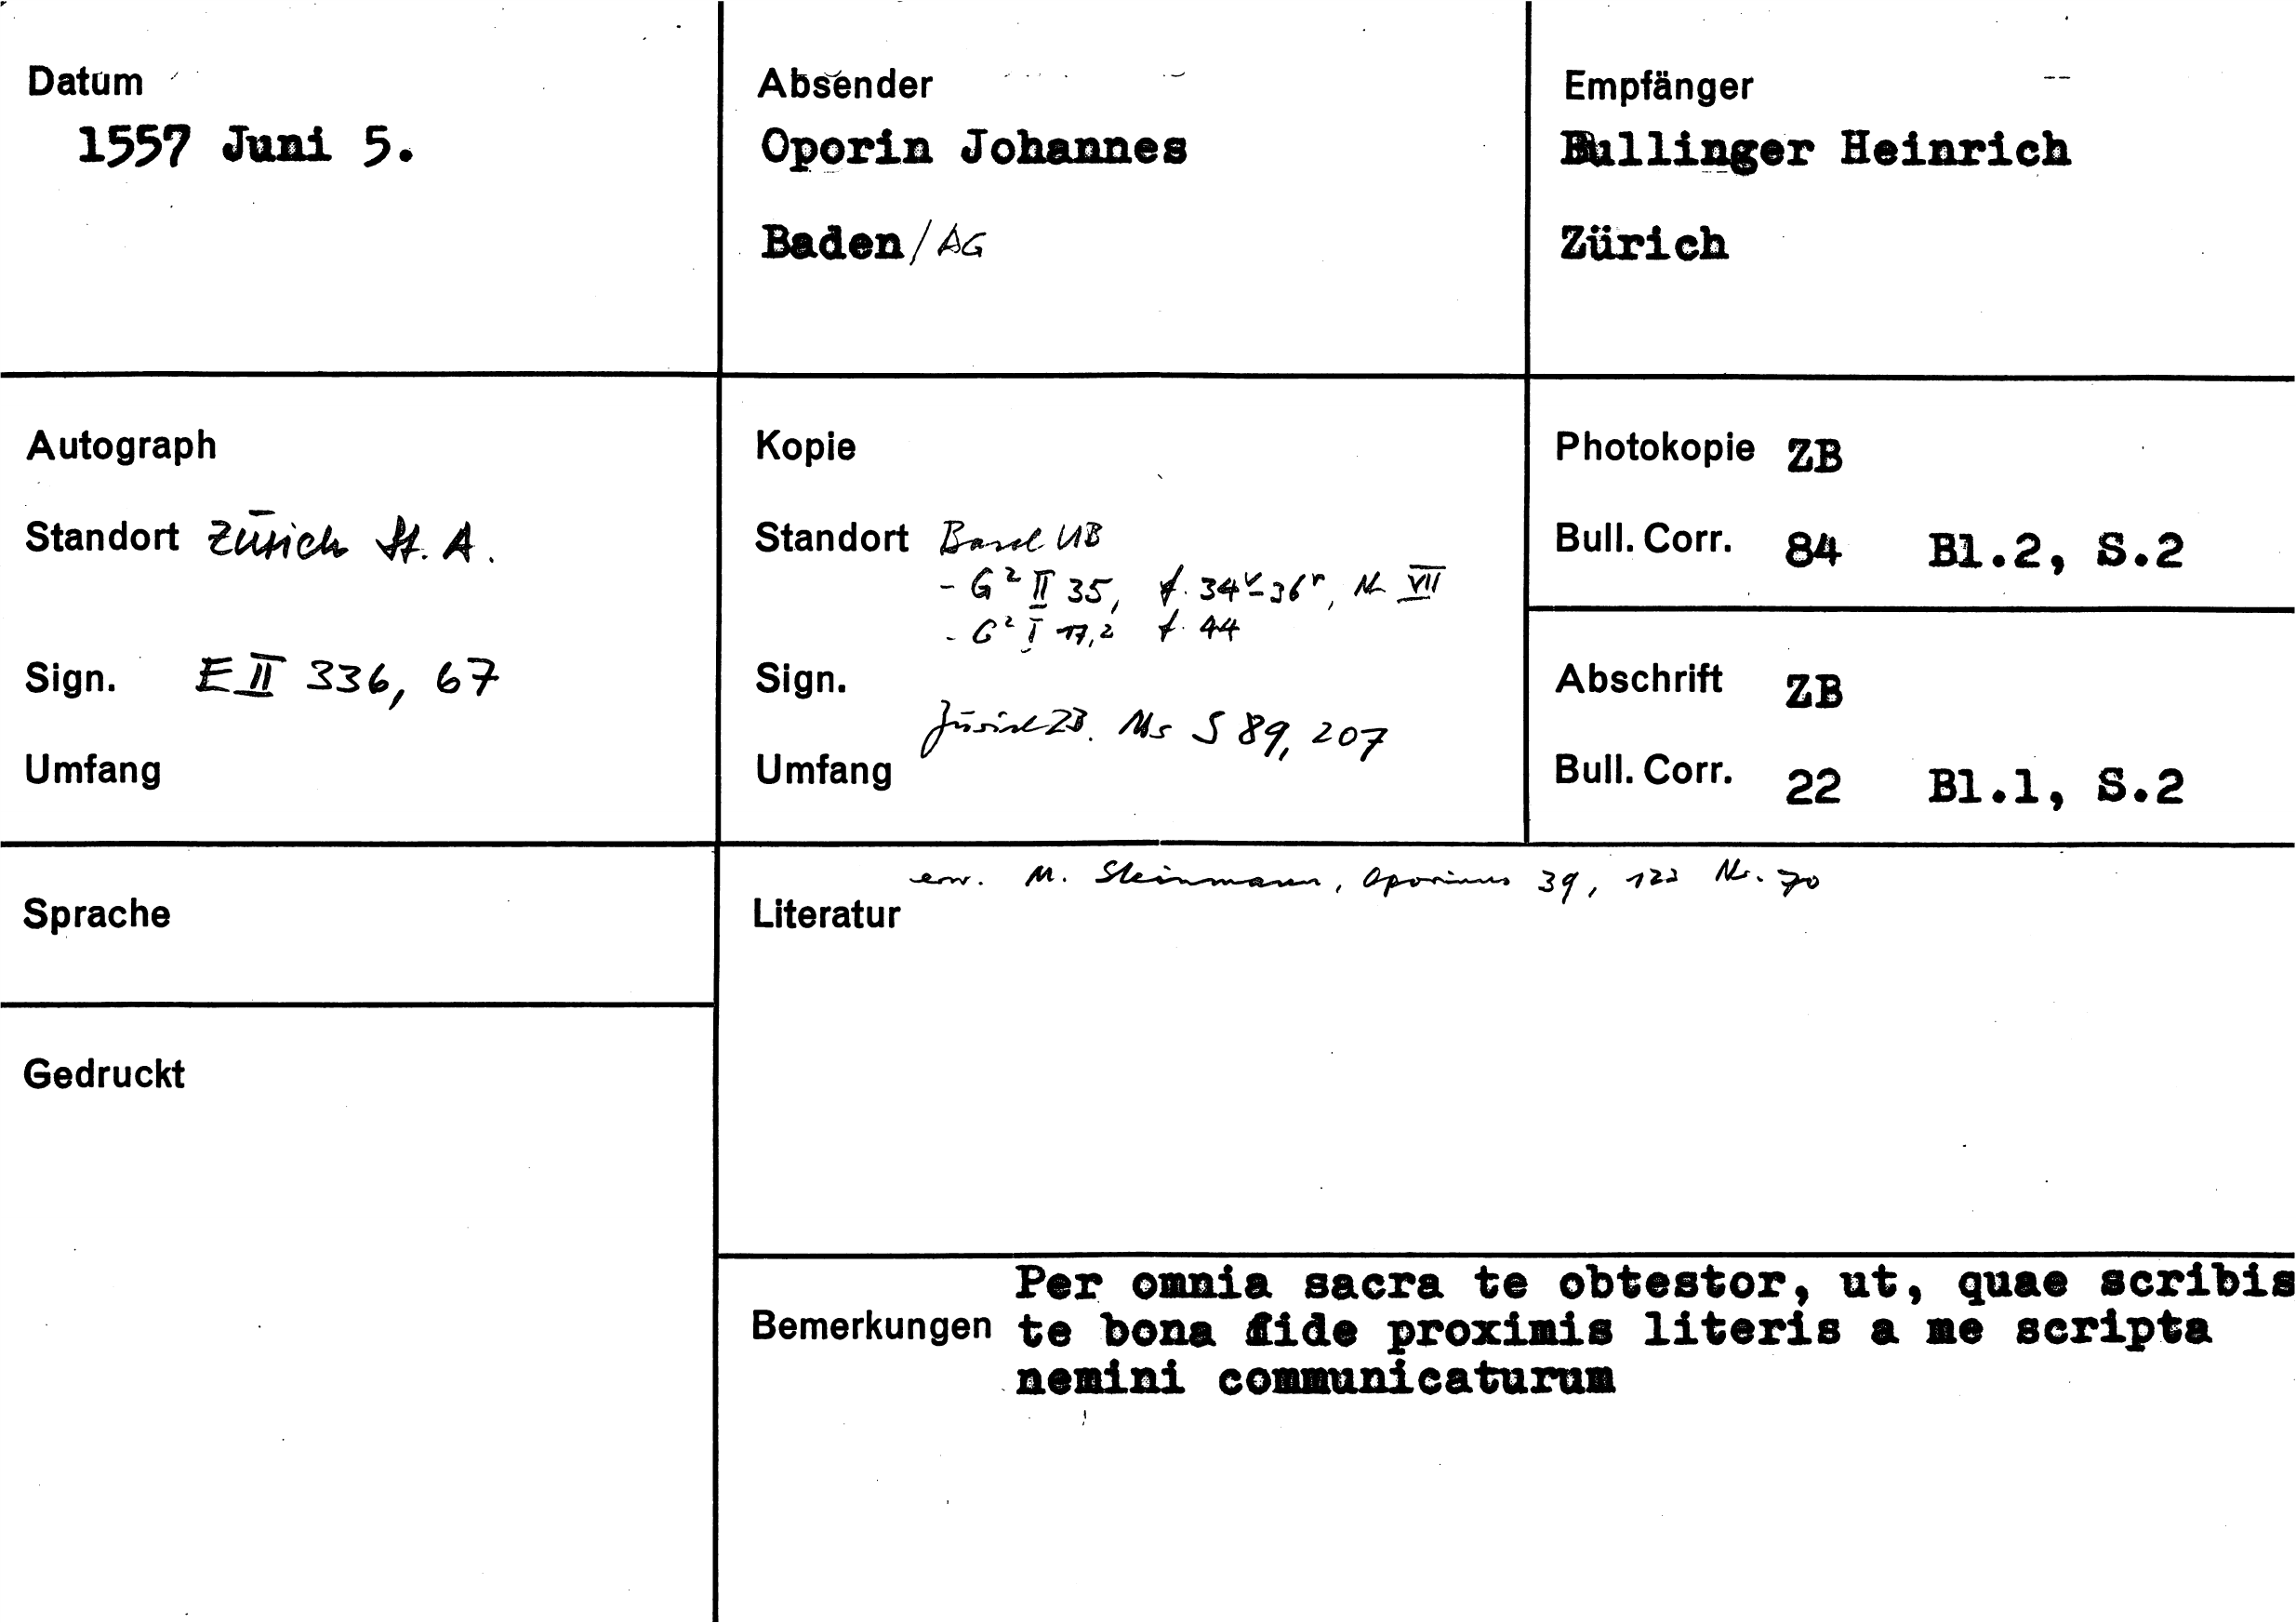 Datum
1557 Juni 5.
Absender
Oporin Johannes
Baden/AG
Empfänger
Bullinger Heinrich
Zürich
Autograph
Standort Zürich St. A.
Sign. E II 336, 67
Umfang
Kopie
Standort Basel UB
- G² II 35, f. 34v-36r, Nr. VII
- G² I 17,2 f. 44
Sign.
Zürich ZB. Ms S 89, 207
Umfang
Photokopie ZB
Bull. Corr. 84 Bl.2, S.2
Abschrift ZB
Bull. Corr. 22 Bl.1, S.2
Sprache
Gedruckt
erw. M. Steinmann, Oporinus 39, 122 Nr. 70
Literatur
Per omnia sacra te obtestor, ut, quae scribis
Bemerkungen te bona fide proximis literis a me scripta
nemini communicaturum